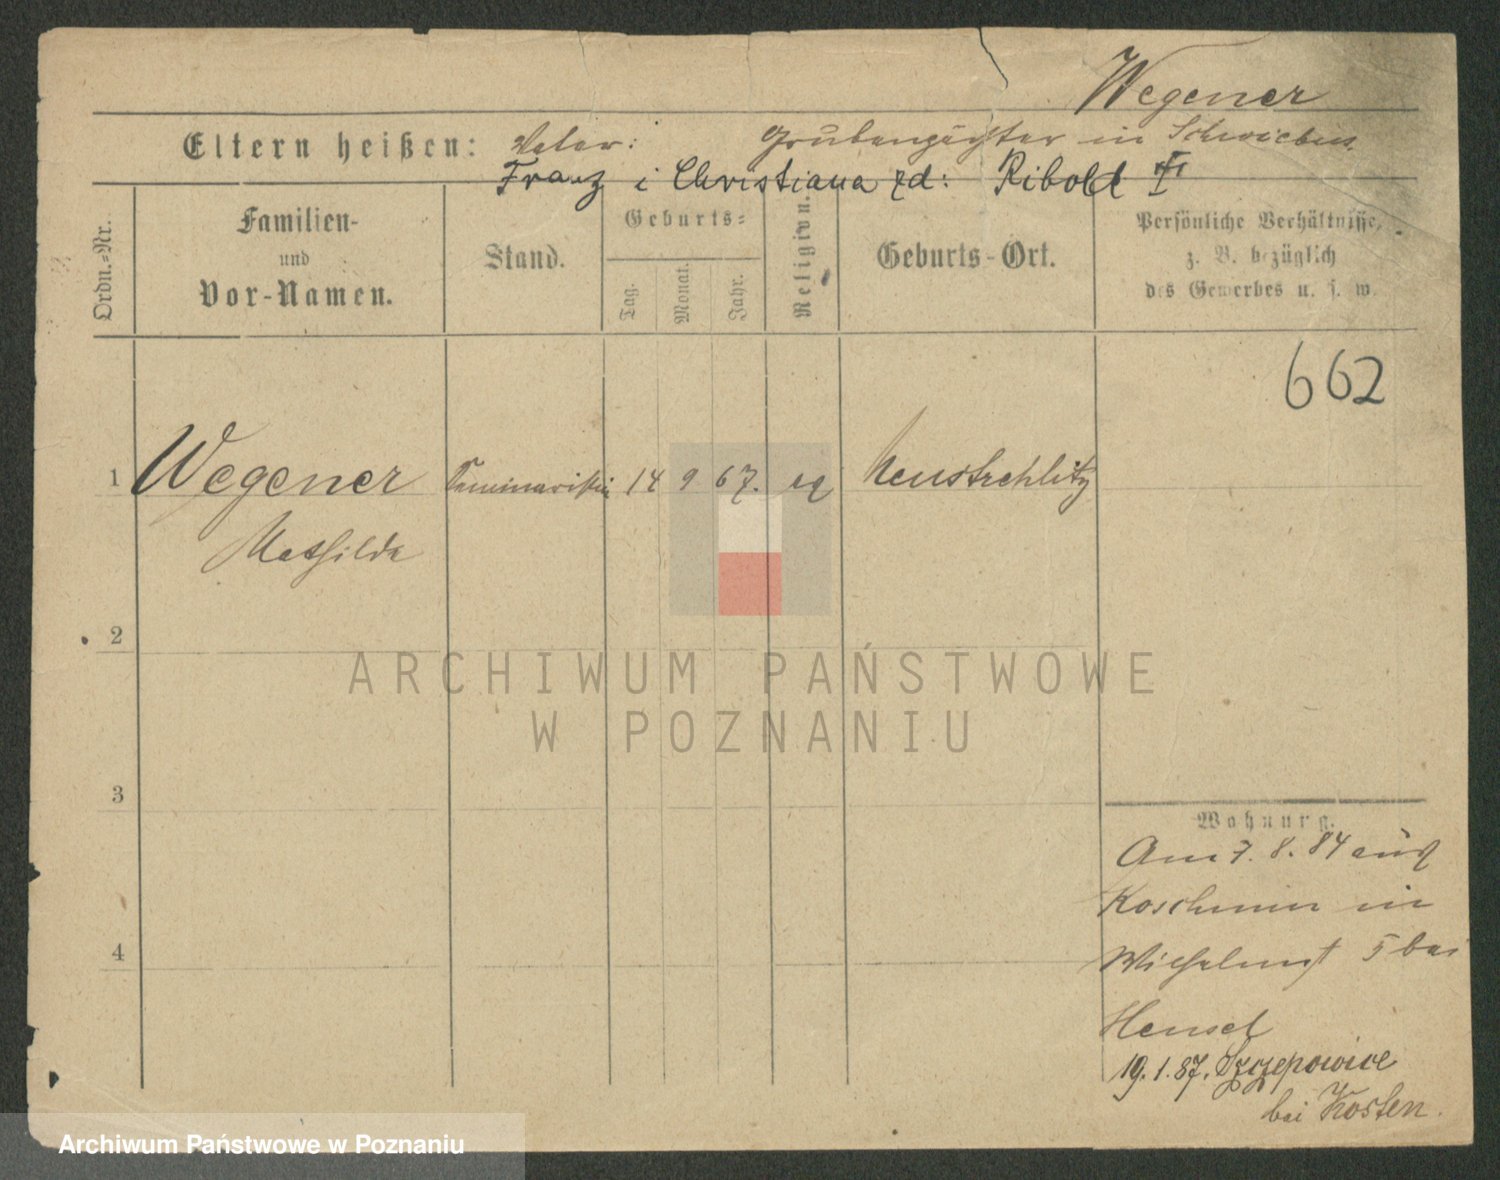 Wegener
Eltern heißen: Vater: Grubenpächter in Schwiebus.
Franz i Christiana zd: Ribold
Ordn.-Nr.
Familien-
und
Vor-Namen.
Stand.
Geburts-
Tag. Monat. Jahr.
Religion.
Geburts-Ort.
Persönliche Verhältnisse,
z. B. bezüglich
des Gewerbes u. s. w.
662
1 Wegener Seminaristin 14 9 67. ev Neustrehlitz
Mathilde
2
ARCHIWUM PAŃSTWOWE
W POZNANIU
3
Wohnung.
Am 7. 8. 84 aus
Koschmin in
Wilhelmst 5 bei
Hensel
19. 1. 87. Szczepowice
bei Kosten.
4
Archiwum Państwowe w Poznaniu